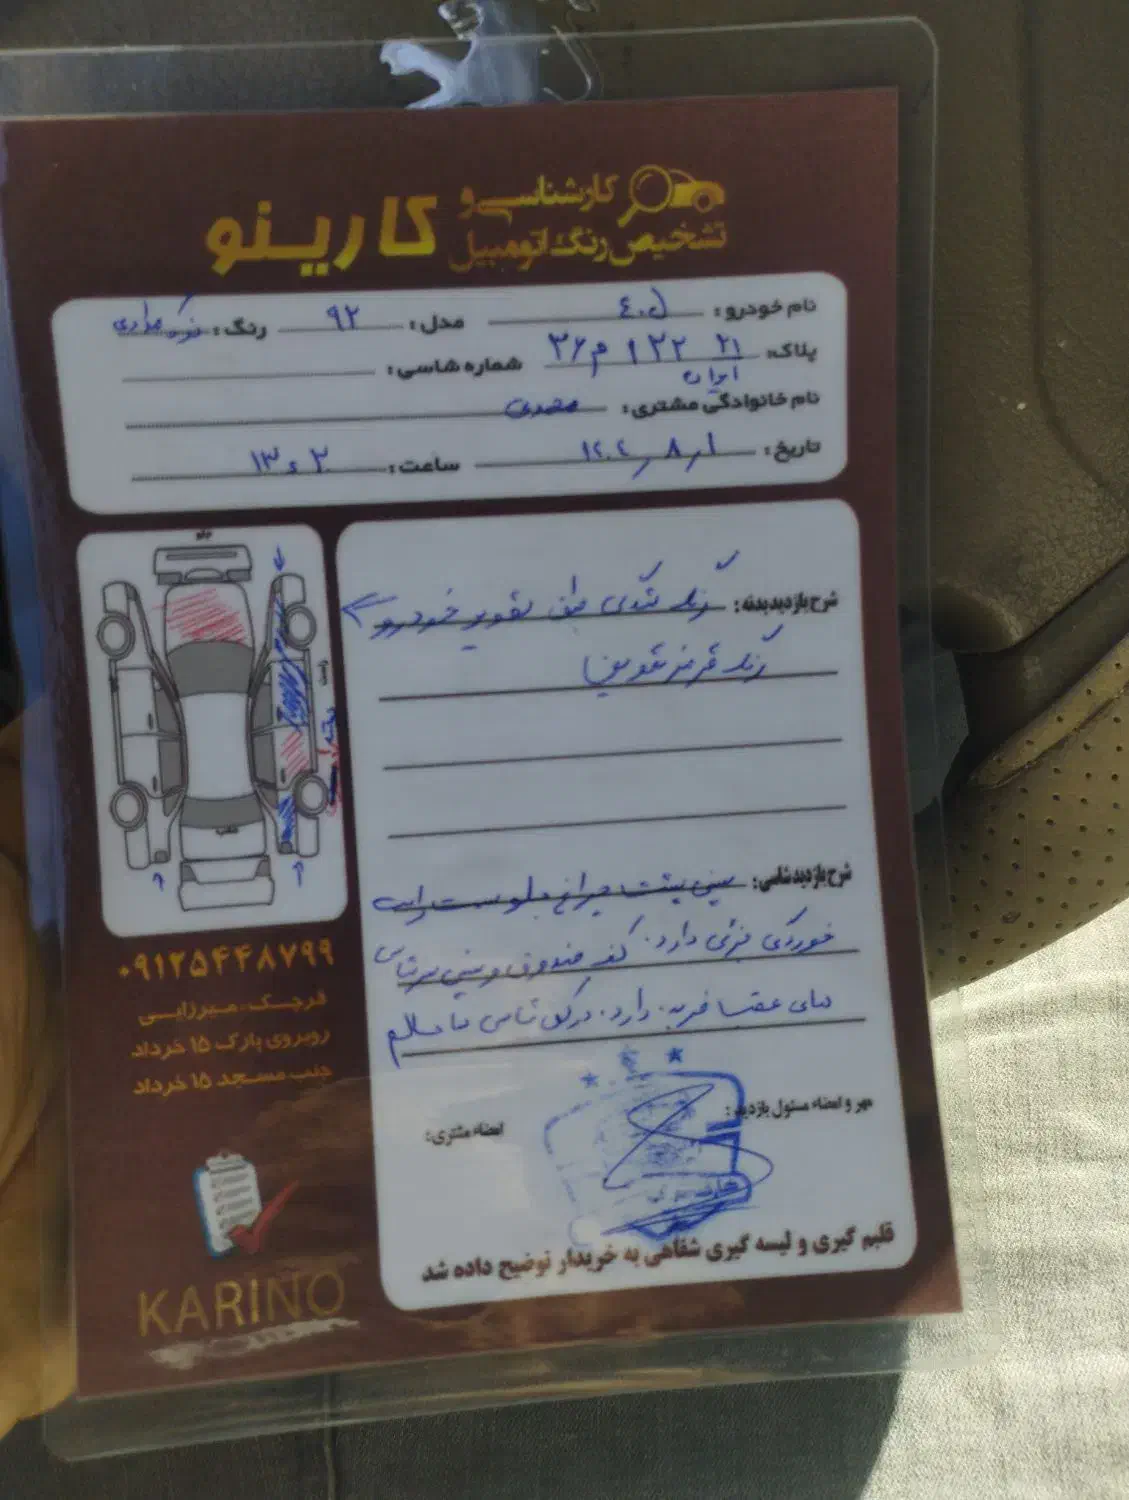 کارشناسی و
تشخیص رنگ اتومبیل
کارینو
نام خودرو: ۴۰۵ مدل: ۹۲ رنگ: نوک مدادی
پلاک: ۲۱ ۱۲۲ م ۳۶ شماره شاسی:
ایران
نام خانوادگی مشتری:
تاریخ: ۱۴۰۴/۸/۱ ساعت: ۱۳:۳۰
جلو
راست
عقب
شرح بازدید بدنه: رنگ شدگی طبق تصویر خودرو
رنگ قرمز تعویض
شرح بازدید شاسی: سینی پشت چراغ جلو سمت راست
خوردگی جزئی دارد. کف صندوق و سینی سرشاسی
های عقب ضربه دارد. درکل شاسی ها سالم
مهر و امضاء مسئول بازدید:
امضاء مشتری:
قلیم گیری و لیسه گیری شفاهی به خریدار توضیح داده شد
۰۹۱۲۵۴۴۸۷۹۹
قرچک، میرزایی
روبروی پارک ۱۵ خرداد
جنب مسجد ۱۵ خرداد
KARINO